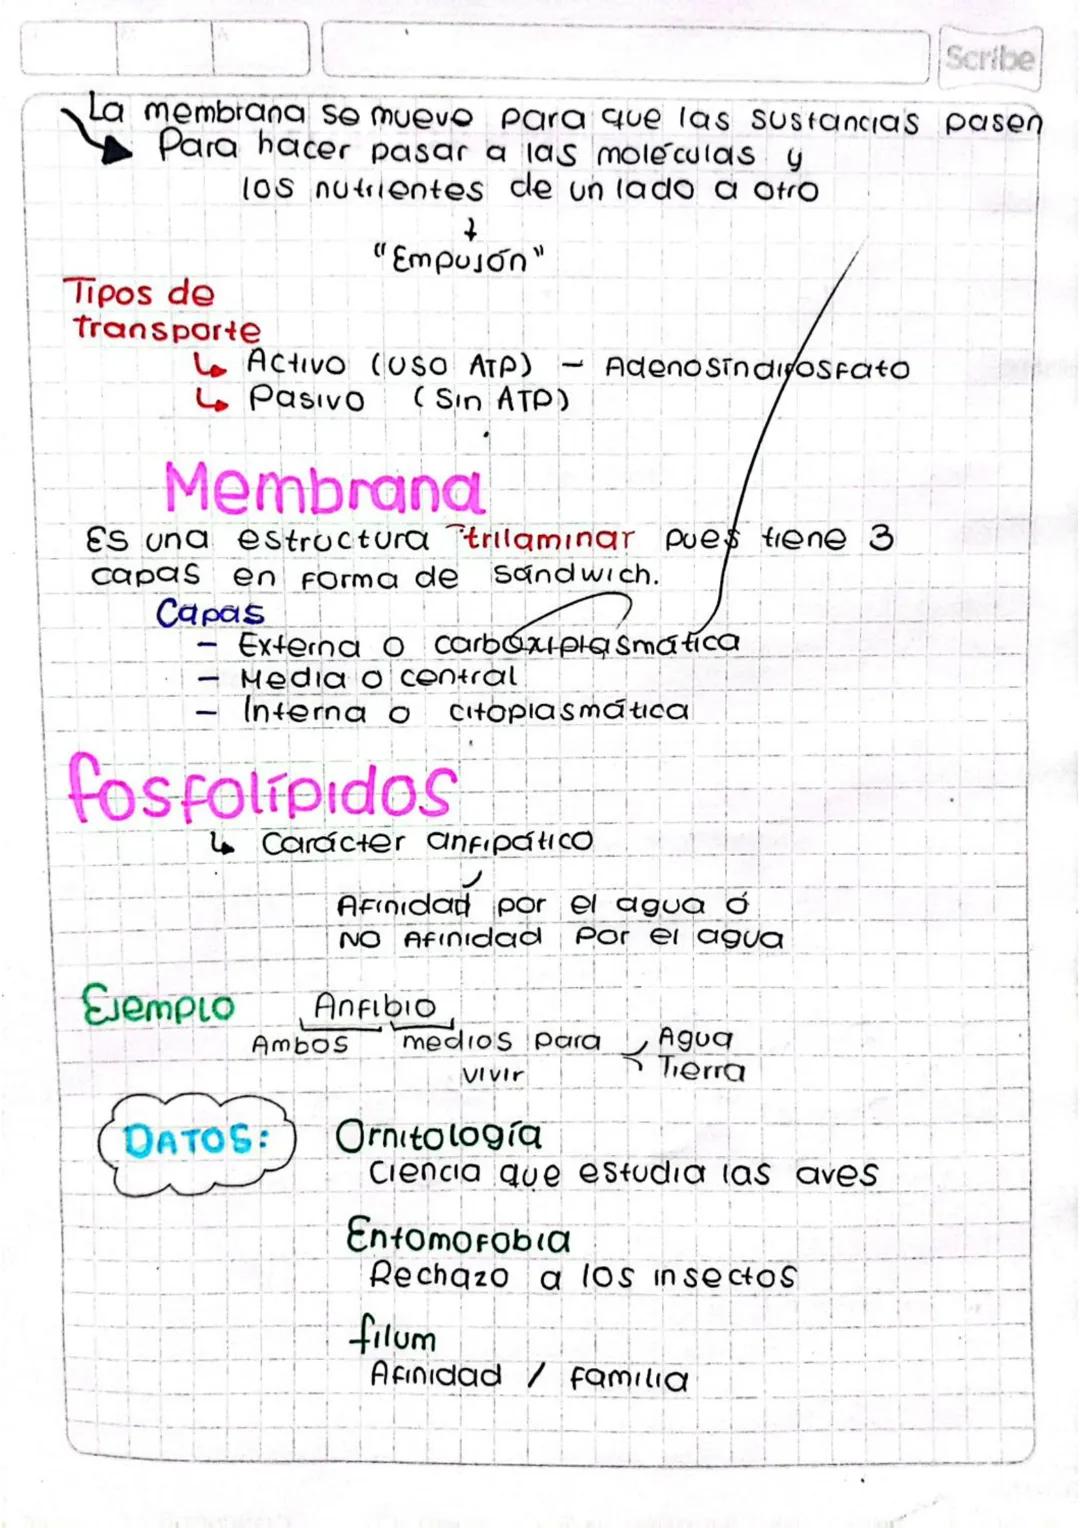 Scribe
La membrana se mueve para que las sustancias pasen
Para hacer pasar a las moléculas y
los nutrientes de un lado a otro
"Empujón"
Tipos de
transporte
Activo (USO ATP) - Adenosindifosfato
Pasivo (Sin ATP)
Membrana
Es una estructura trilaminar pues tiene 3
capas en forma de sándwich.
Capas
- Externa o carboxiplasmática
- Media o central
- Interna o citoplasmática
fosfolípidos
Carácter anfipático
Afinidad por el agua ó
NO Afinidad Por el agua
Ejemplo Anfibio
Ambos medios para Agua
vivir Tierra
DATOS: Ornitología
Ciencia que estudia las aves
Entomofobia
Rechazo a los insectos
filum
Afinidad / familia